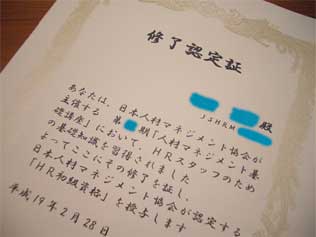 修了認定証
殿
JSHRM
あなたは、日本人材マネジメント協会が
主催する 第 期「人材マネジメント基
礎講座」において、HRスタッフのため
の基礎知識を習得されました
よってここにその修了を証し、
日本人材マネジメント協会が認定する
「HR初級資格」を授与します
平成19年2月28日